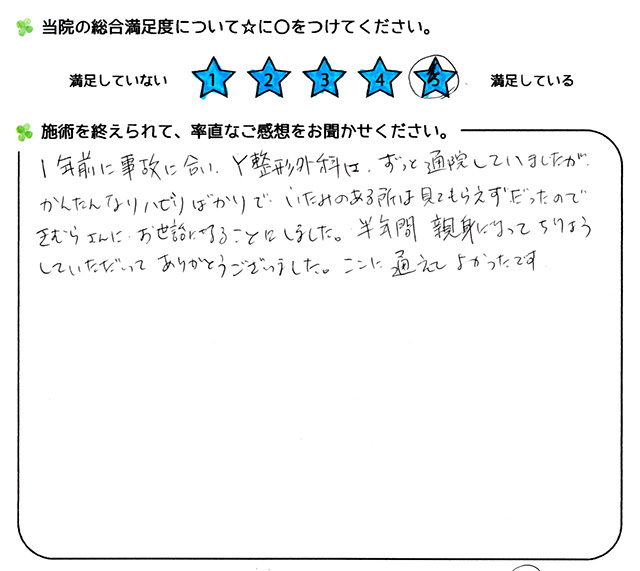 当院の総合満足度について☆に○をつけてください。
満足していない 1 2 3 4 5 満足している
施術を終えられて、率直なご感想をお聞かせください。
1年前に事故に合い、Y整形外科は、ずっと通院していましたが、
かんたんなリハビリばかりで、いたみのある所は見てもらえずだったので
きむらさんに、お世話になることにしました。半年間 親身になって ちりょう
していただいて ありがとうございました。ここに 通えて よかったです